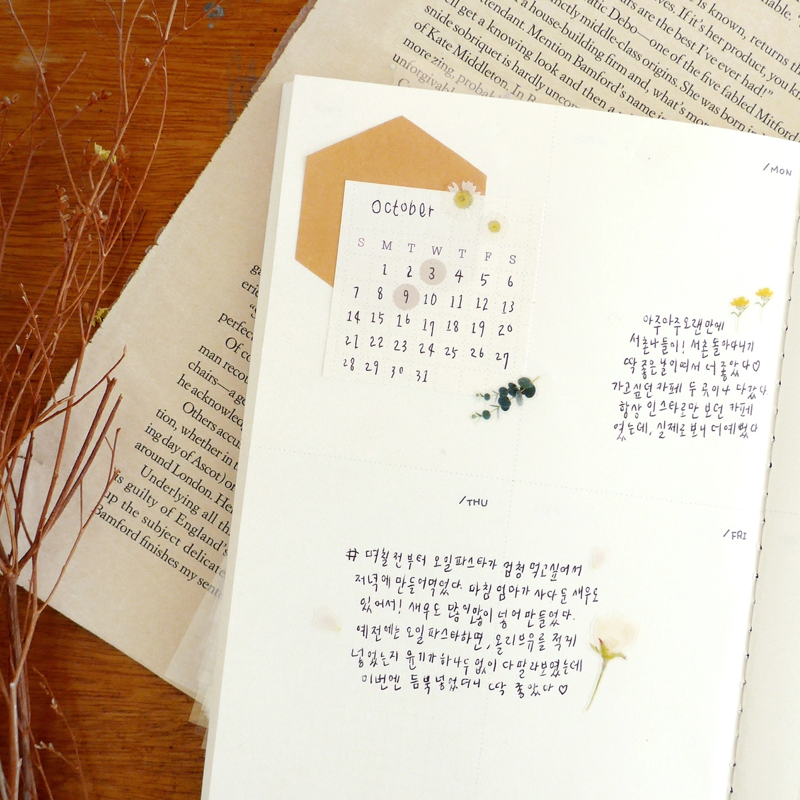 is known, returns th
atic Debo—one of the five fabled Mitford
of Kate Middleton. In B
more zing, probab
unforgivable
October
S M T W T F S
1 2 3 4 5 6
7 8 9 10 11 12 13
14 15 16 17 18 19 20
21 22 23 24 25 26 27
28 29 30 31
/MON
아주아주 오랜만에
서촌나들이! 서촌 돌아다니기
딱 좋은 날이여서 더 좋았다♡
가고싶던 카페 두 곳이나 다갔다.
항상 인스타로만 보던 카페
였는데, 실제로 보니 더 예뻤다
/THU
# 며칠전부터 오일파스타가 엄청 먹고싶어서
저녁에 만들어먹었다. 마침 엄마가 사다 둔 새우도
있어서! 새우도 많이많이 넣어 만들었다.
예전에는 오일파스타하면, 올리브유를 적게
넣었는지 윤기가 하나두 없이 다 말라보였는데
이번엔 듬뿍 넣었더니 딱 좋았다♡
/FRI
perfec
Of co
man recou
chairs—a
he acknowled
Others accu
tion, whether in t
ing day of Ascot) or
around London. He
Underlying all th
is guilty of England's
up the subject delicate
Bamford finishes my sent